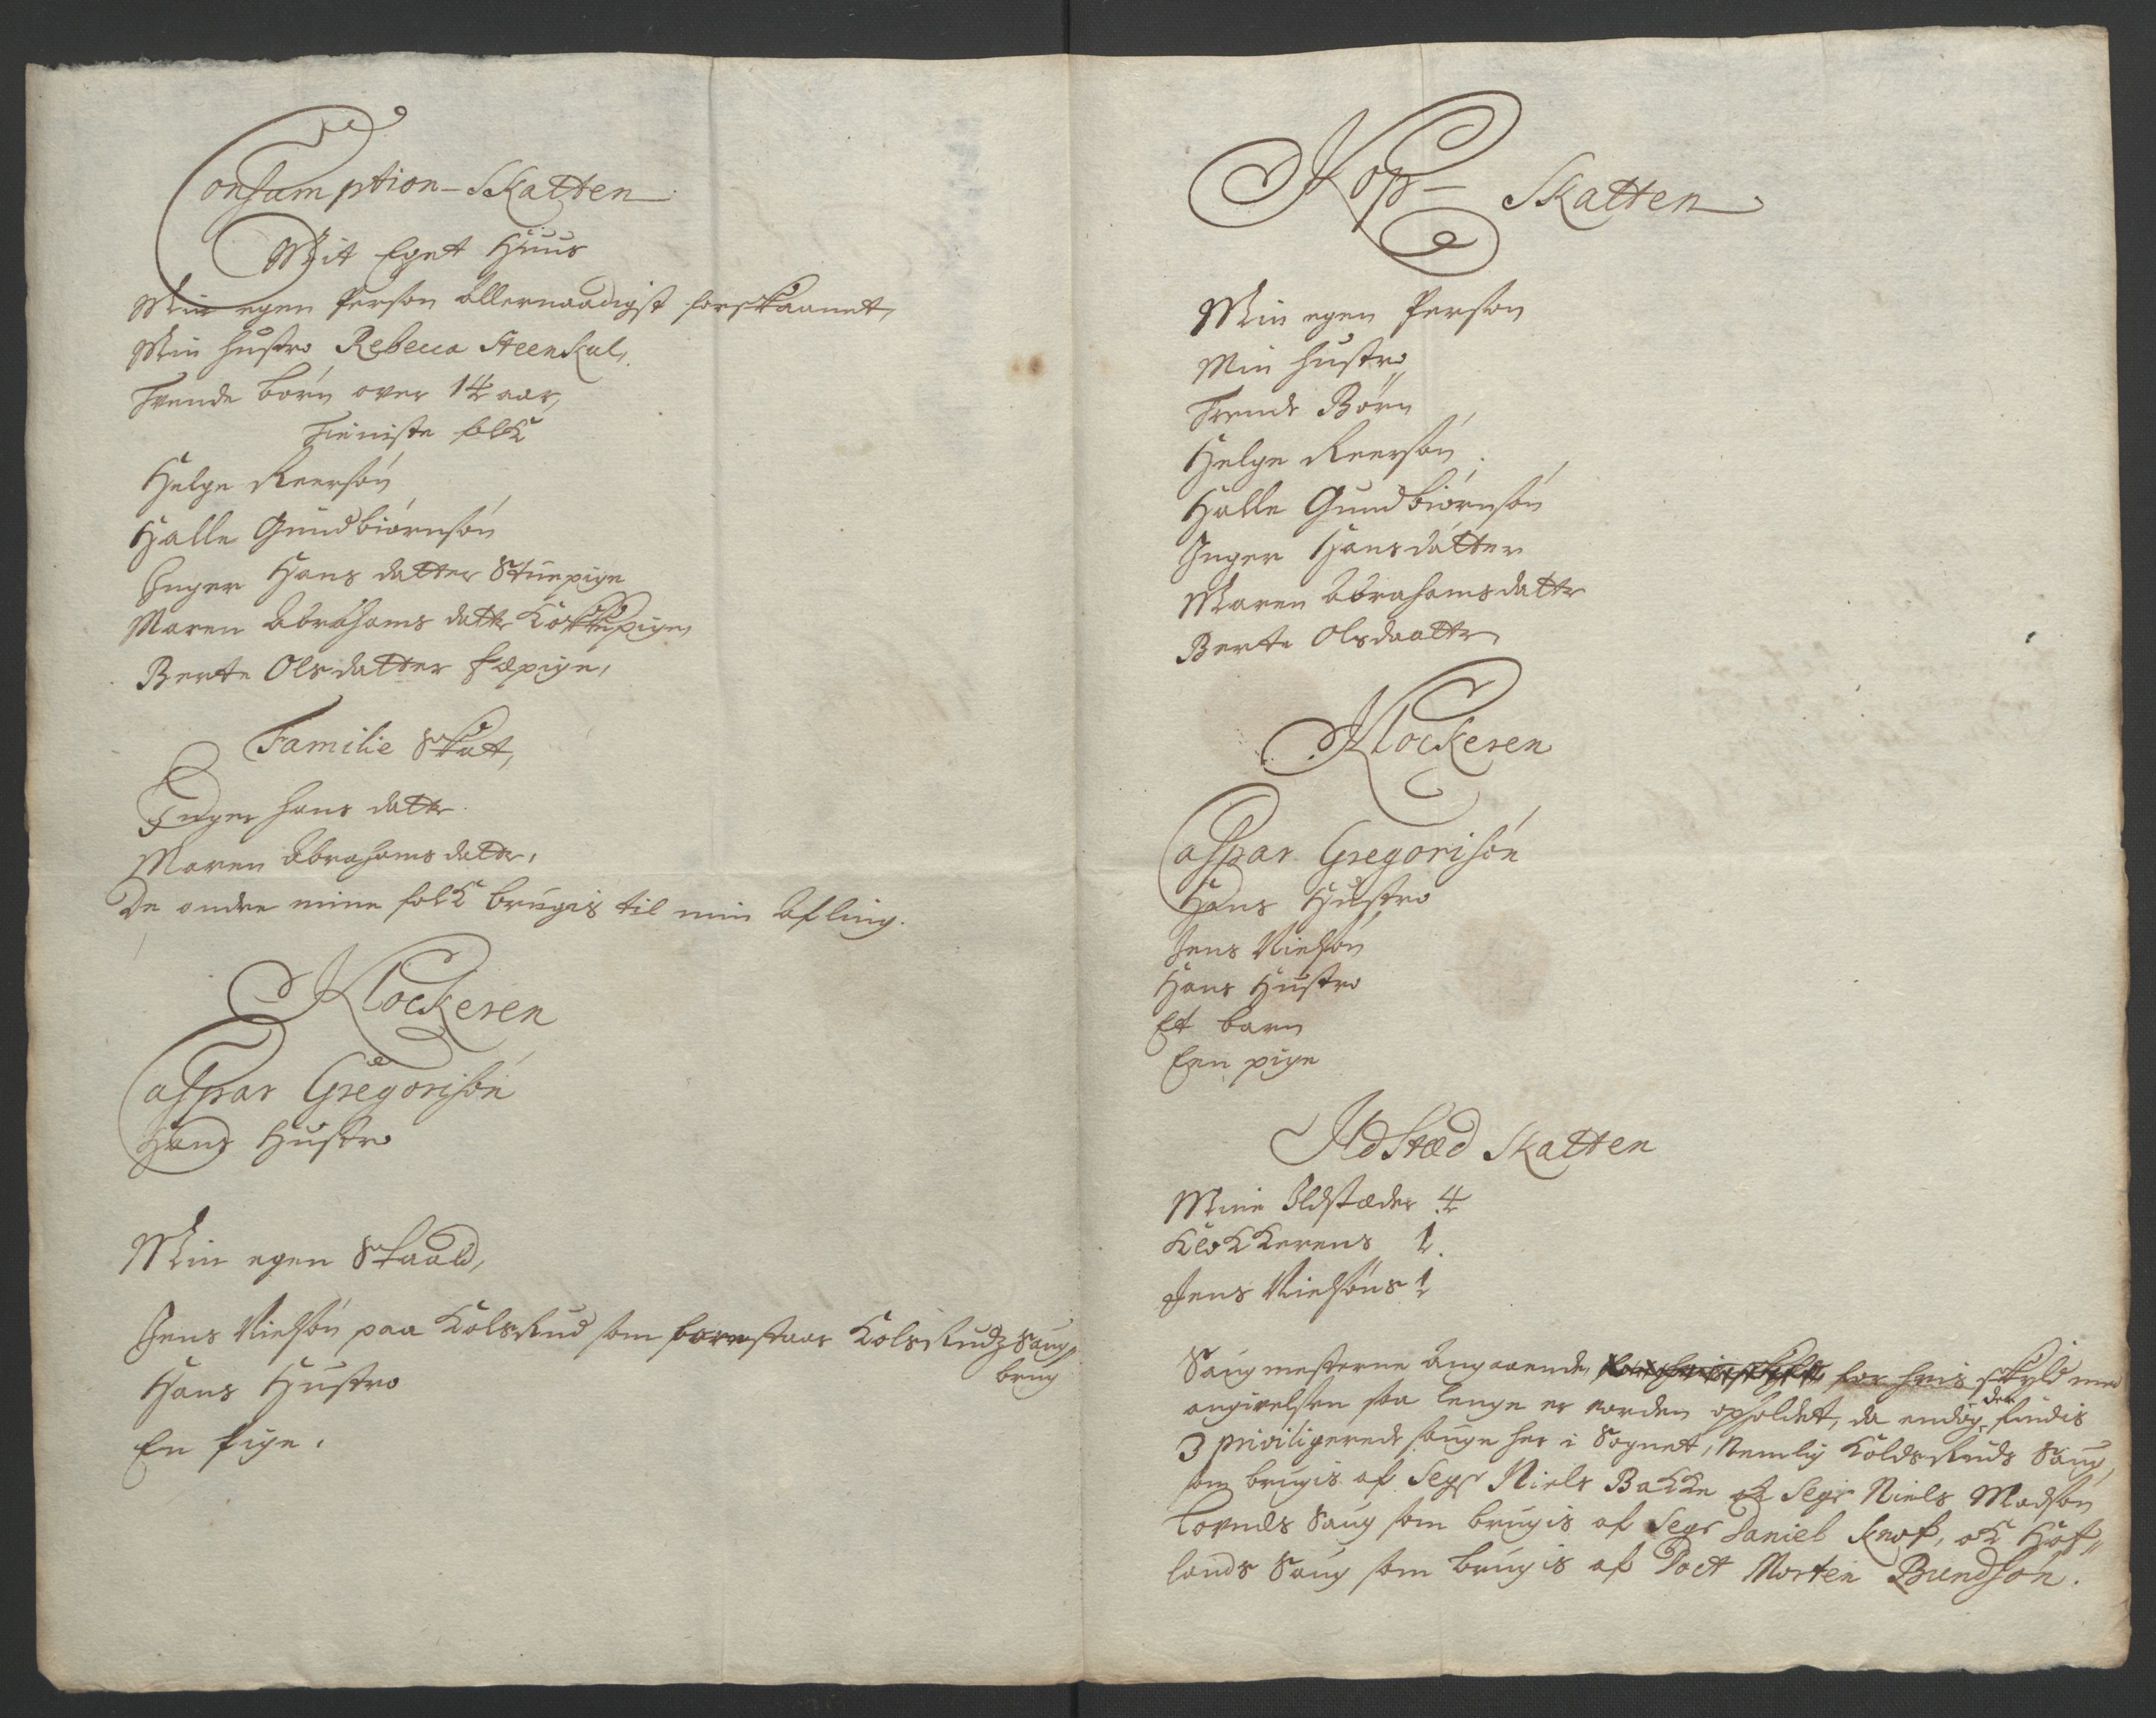 Consumption-Skatten
Mit Eget Huus
Min egen Person Allernaadigst forskaanet,
Min hustro Rebecca Steenkul,
Trende børn over 14 aar,
Tieniste folk
Helge Reersøn
Halle Gundbiørnsøn
Inger Hans datter Stuepige
Maren Abrahams datter Kokkepige,
Berte Olsdatter Fæpige,
Familie Skat,
Inger Hans datter
Maren Abrahams datter,
De andre mine folk brugis til min Afling.
Klockeren
Caspar Gregorisøn
Hans Hustro
Min egen Skaald,
Jens Nielsøn paa Kolsrud som forestaar Kolsrudz Saug
brug
Hans Hustro
En Pige.
Kop-Skatten
Min egen Person
Min hustro,
Trende Børn
Helge Reersøn
Halle Gundbiørnsøn
Inger Hansdatter
Maren Abrahamsdatter
Berte Olsdaatter
Klockeren
Caspar Gregorisøn
Hans Hustro
Jens Nielsøn
Hans Hustro
Et barn
Een pige
Ildstæd Skatten
Mine Ildstæder 4
Klokkerens 1.
Jens Nielsøns 1
Saugmesterne Angaaende, for hvis skyld med
angivelsen saa lenge er vorden opholdet, da endog der findis
3 priviligerede sauge her i Sognet, Nemlig Koldsruds Saug,
som brugis af Segr Niels Bakke ok Segr Niels Madsøn
Lovnes Saug som brugis af Segr Daniel Knof, ok Hof,,
lands Saug som brugis af Poct Morten Bundsøn.